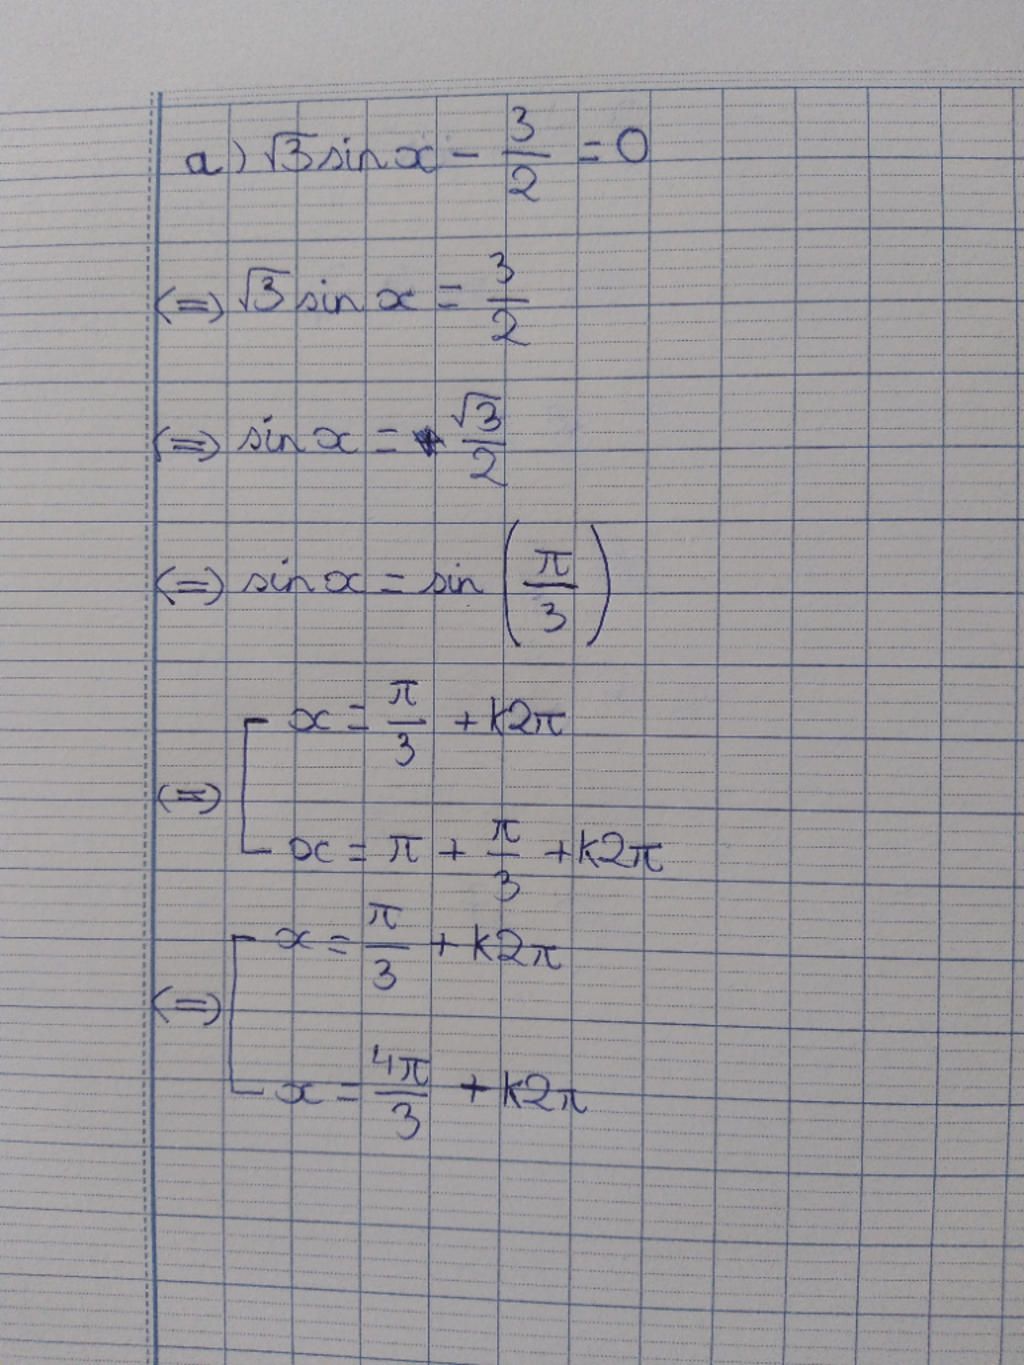 a) √3 sin x - 3/2 = 0
(=) √3 sin x = 3/2
(=) sin x = √3/2
(=) sin x = sin (π/3)
(=) [ x = π/3 + k2π
x = π + π/3 + k2π
(=) [ x = π/3 + k2π
x = 4π/3 + k2π